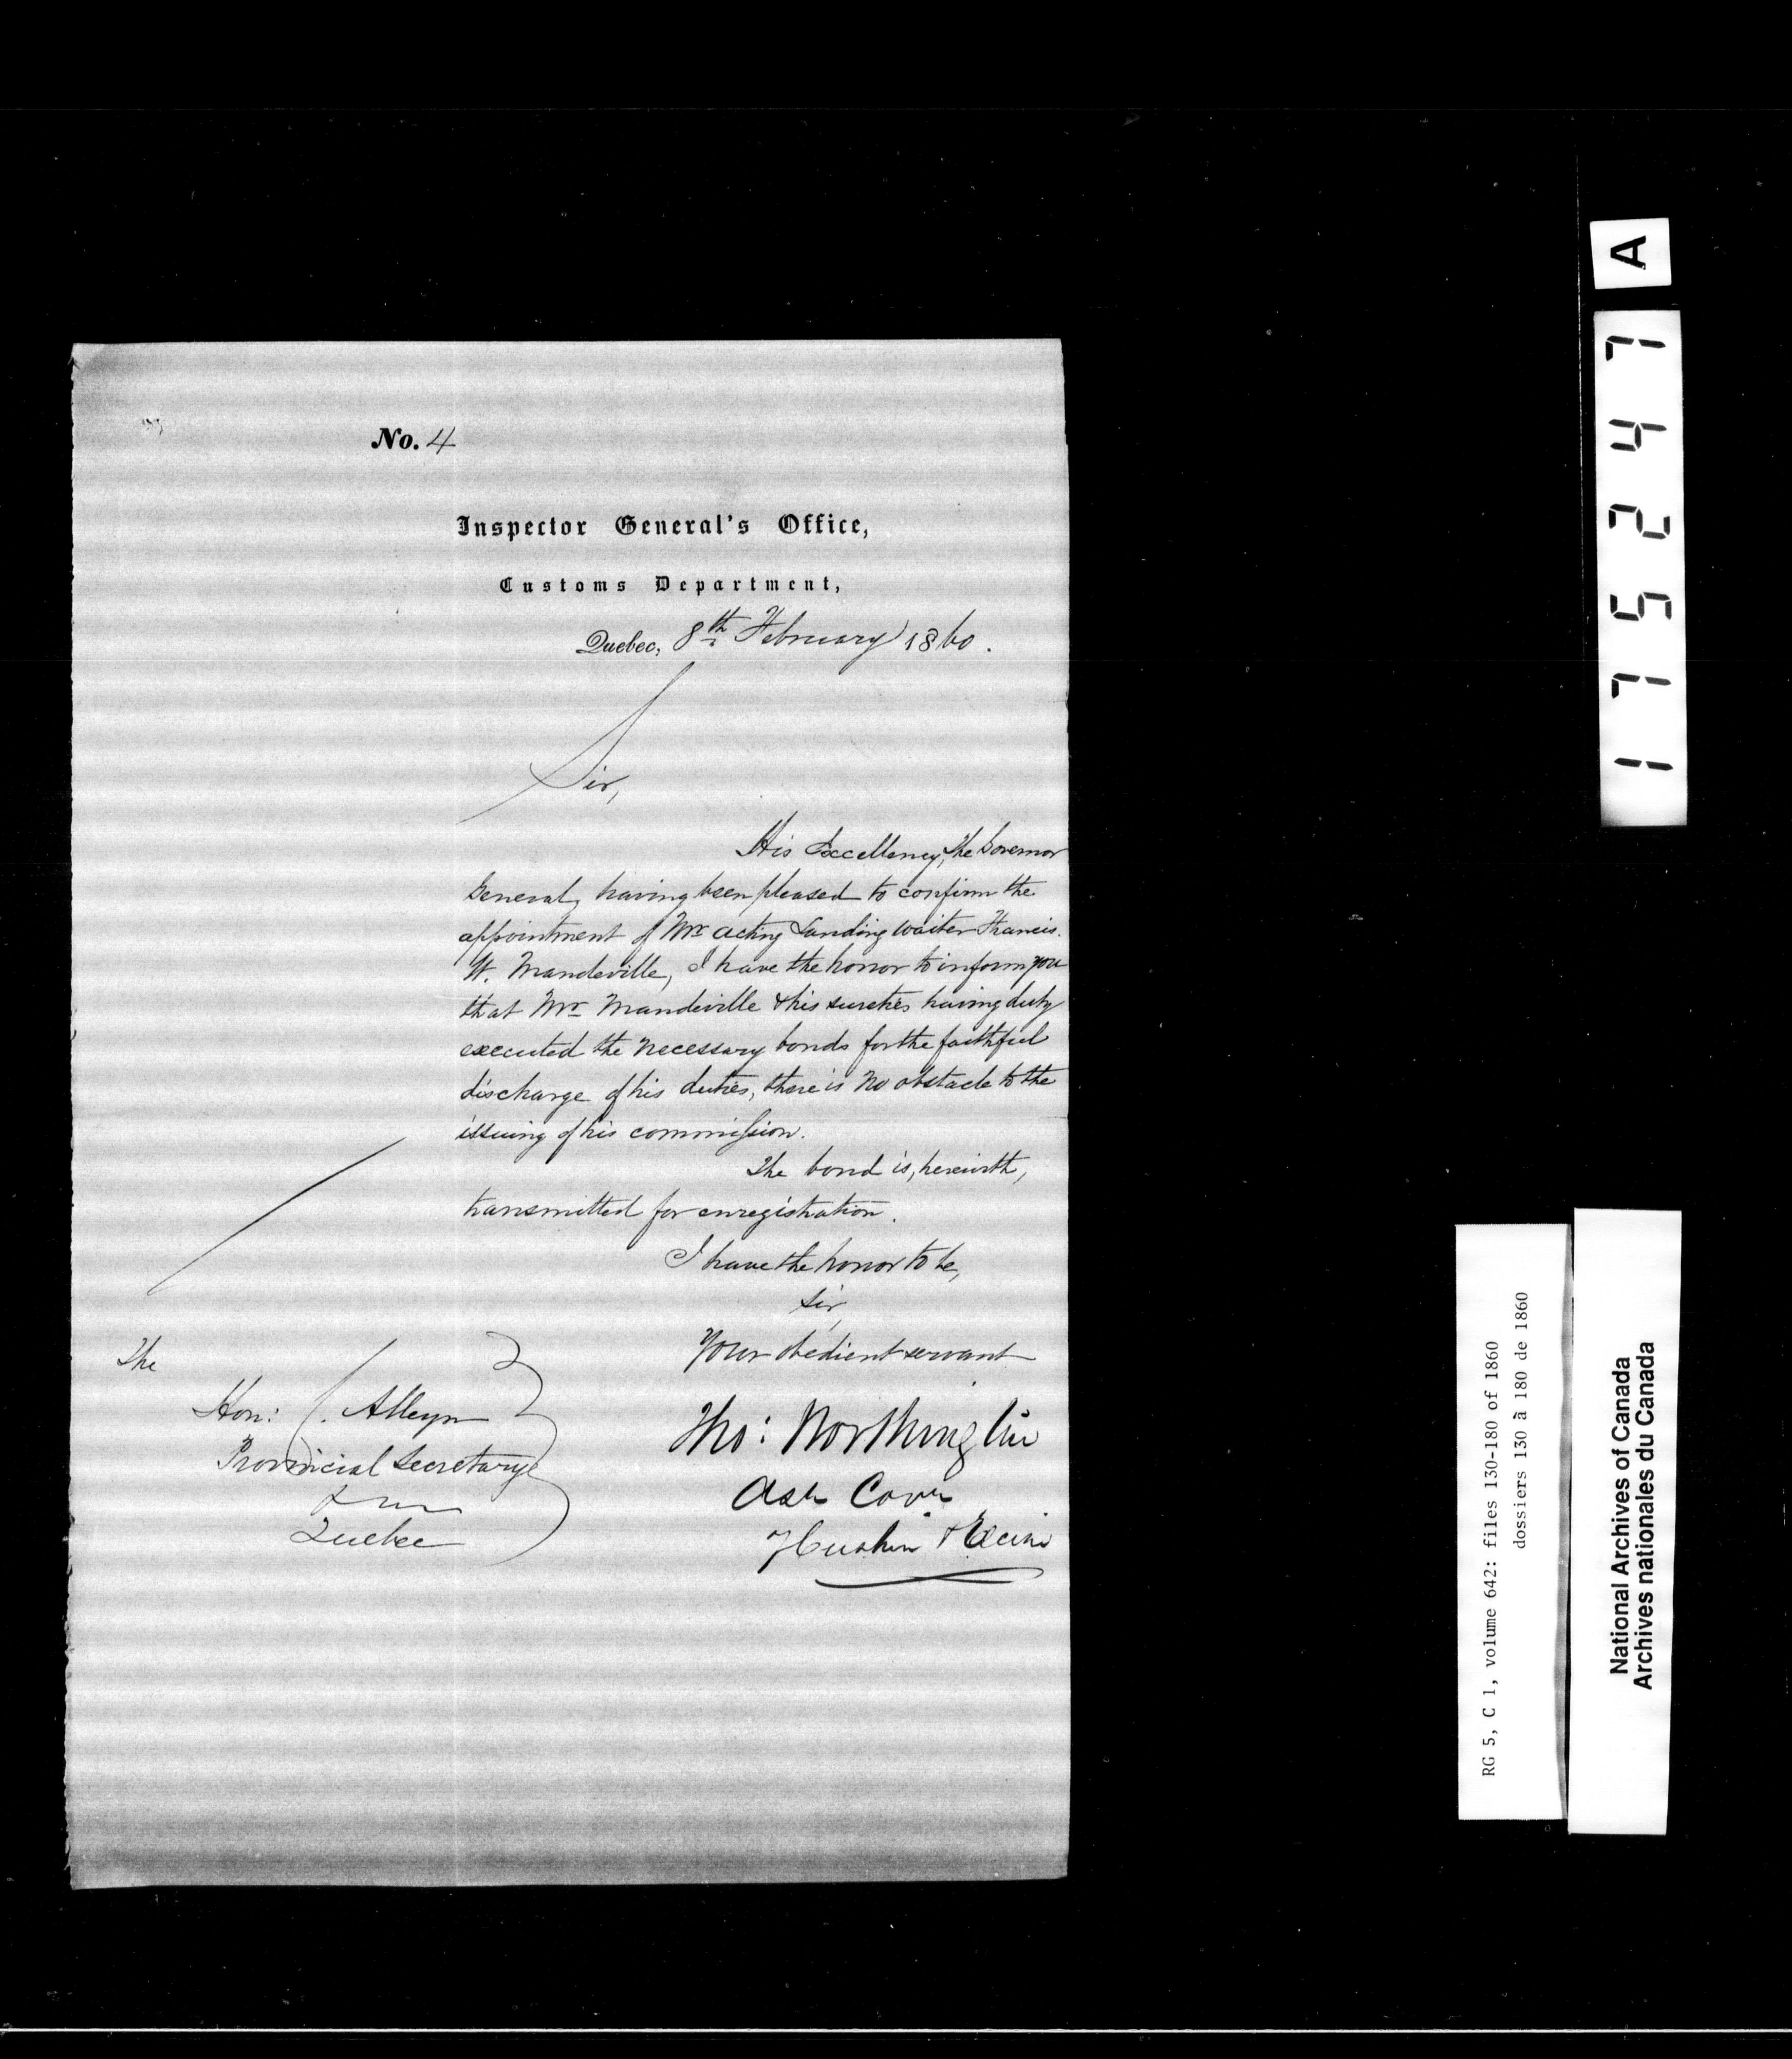 No. 4
Inspector General's Office,
Customs Department,
Quebec, 8th February 1860.
Sir,
His Excellency, the Governor
General, having been pleased to confirm the
appointment of Mr. acting Landing Waiter Francis
W. Mandeville, I have the honor to inform you
that Mr. Mandeville & his sureties having duly
executed the necessary bonds for the faithful
discharge of his duties, there is no obstacle to the
issuing of his commission.
The bond is, herewith,
transmitted for enregistration.
I have the honor to be,
Sir,
Your obedient servant
Tho: Worthington
The
Hon: C. Alleyn
Provincial Secretary
Quebec
A
175247
RG 5, C 1, volume 642: files 130-180 of 1860
dossiers 130 à 180 de 1860
National Archives of Canada
Archives nationales du Canada